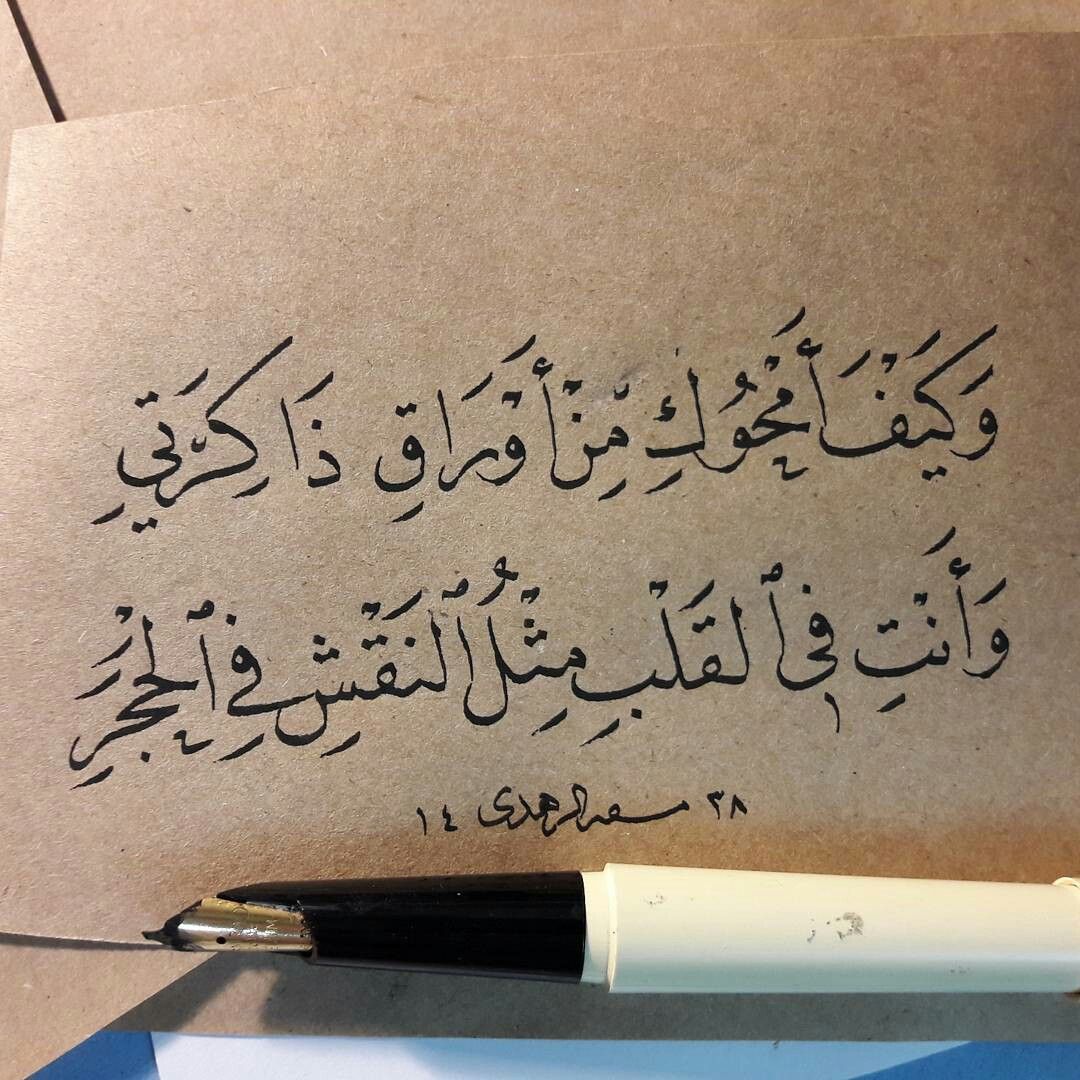 وَكَيْفَ أَمْحُوكِ مِّنْ أَوْرَاقِ ذَاكِرَتِي
وَأَنْتِ فِي ٱلقَلْبِ مِثْلُ ٱلنَقْشِ فِي ٱلحَجَرِ
٣٨ ١٤